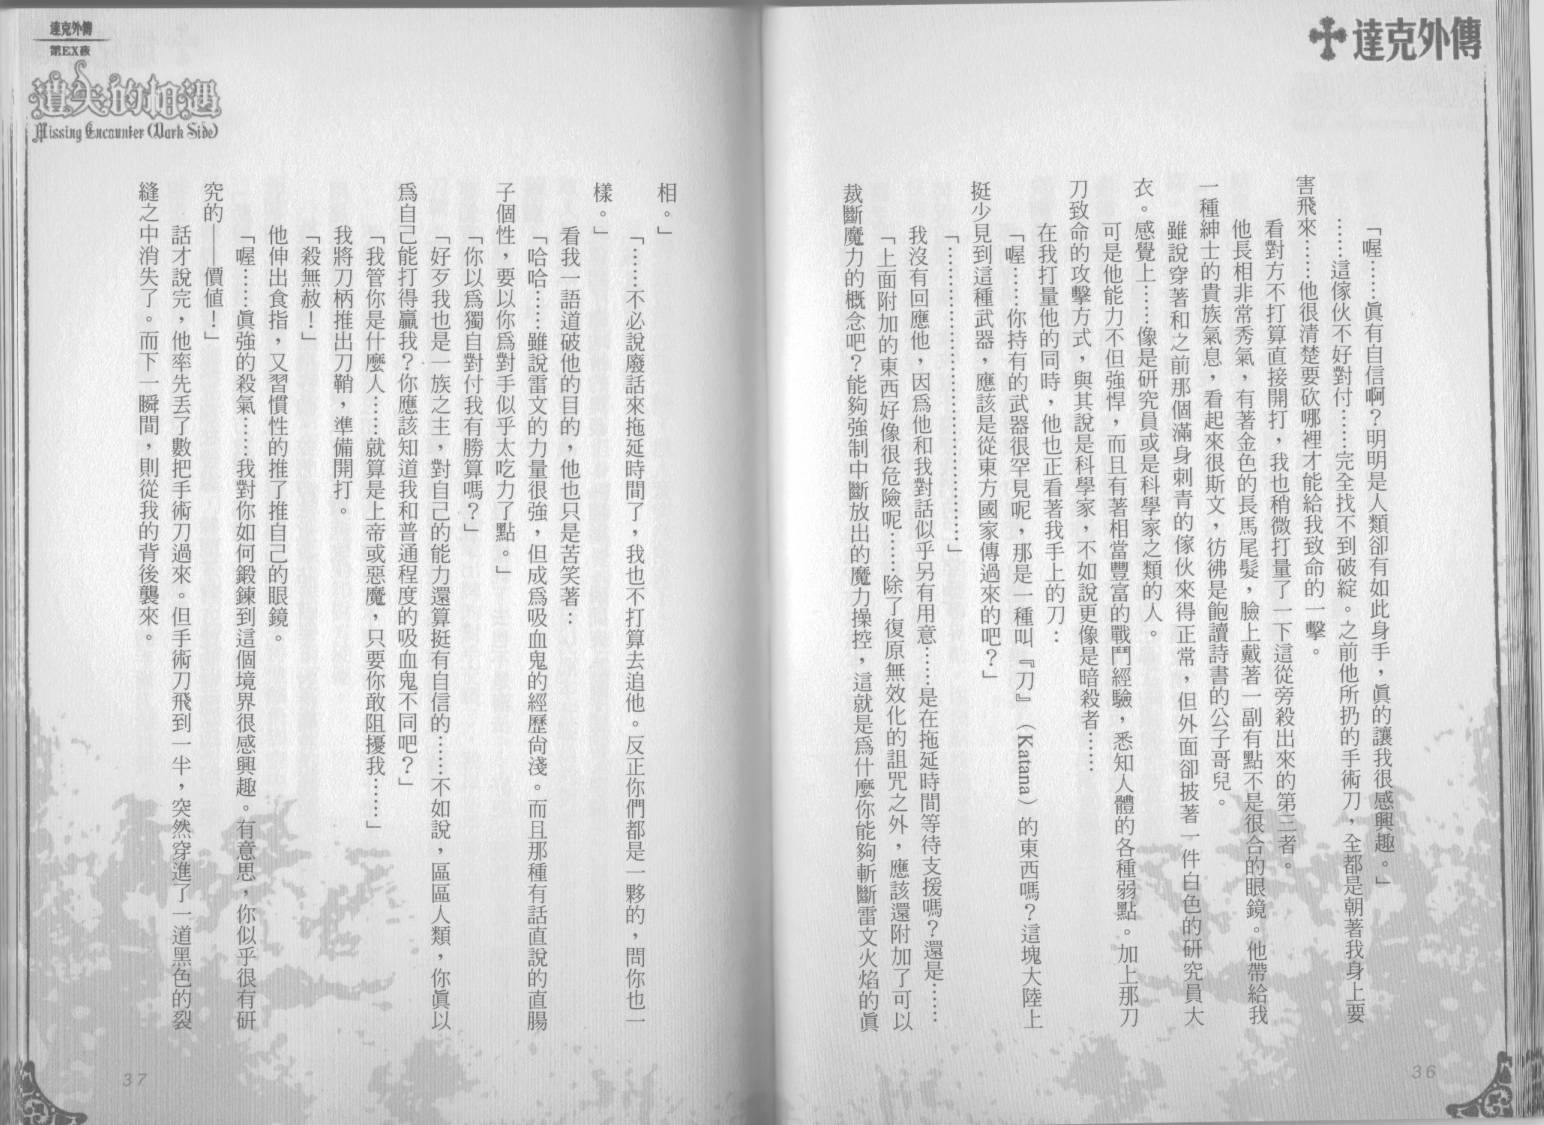 達克外傳
「喔……眞有自信啊？明明是人類卻有如此身手，眞的讓我很感興趣。」
……這傢伙不好對付……完全找不到破綻。之前他所扔的手術刀，全都是朝著我身上要
害飛來……他很清楚要砍哪裡才能給我致命的一擊。
看對方不打算直接開打，我也稍微打量了一下這從旁殺出來的第三者。
他長相非常秀氣，有著金色的長馬尾髮，臉上戴著一副有點不是很合的眼鏡。他帶給我
一種紳士的貴族氣息，看起來很斯文，彷彿是飽讀詩書的公子哥兒。
雖說穿著和之前那個滿身刺青的傢伙來得正常，但外面卻披著一件白色的研究員大
衣。感覺上……像是研究員或是科學家之類的人。
可是他能力不但強悍，而且有著相當豐富的戰鬥經驗，悉知人體的各種弱點。加上那刀
刀致命的攻擊方式，與其說是科學家，不如說更像是暗殺者……
在我打量他的同時，他也正看著我手上的刀：
「喔……你持有的武器很罕見呢，那是一種叫『刀』（Katana）的東西嗎？這塊大陸上
挺少見到這種武器，應該是從東方國家傳過來的吧？」
「……………………………………」
我沒有回應他，因爲他和我對話似乎另有用意……是在拖延時間等待支援嗎？還是……
「上面附加的東西好像很危險呢……除了復原無效化的詛咒之外，應該還附加了可以
裁斷魔力的概念吧？能夠強制中斷放出的魔力操控，這就是爲什麼你能夠斬斷雷文火焰的眞
36
達克外傳
第EX夜
遺失的相遇
Missing Encounter (Dark Side)
相。」
「……不必說廢話來拖延時間了，我也不打算去追他。反正你們都是一夥的，問你也一
樣。」
看我一語道破他的目的，他也只是苦笑著：
「哈哈……雖說雷文的力量很強，但成爲吸血鬼的經歷尙淺。而且那種有話直說的直腸
子個性，要以你爲對手似乎太吃力了點。」
「你以爲獨自對付我有勝算嗎？」
「好歹我也是一族之主，對自己的能力還算挺有自信的……不如說，區區人類，你眞以
爲自己能打得贏我？你應該知道我和普通程度的吸血鬼不同吧？」
「我管你是什麼人……就算是上帝或惡魔，只要你敢阻擾我……」
我將刀柄推出刀鞘，準備開打。
「殺無赦！」
他伸出食指，又習慣性的推了推自己的眼鏡。
「喔……眞強的殺氣……我對你如何鍛鍊到這個境界很感興趣。有意思，你似乎很有研
究的——價値！」
話才說完，他率先丟了數把手術刀過來。但手術刀飛到一半，突然穿進了一道黑色的裂
縫之中消失了。而下一瞬間，則從我的背後襲來。
37